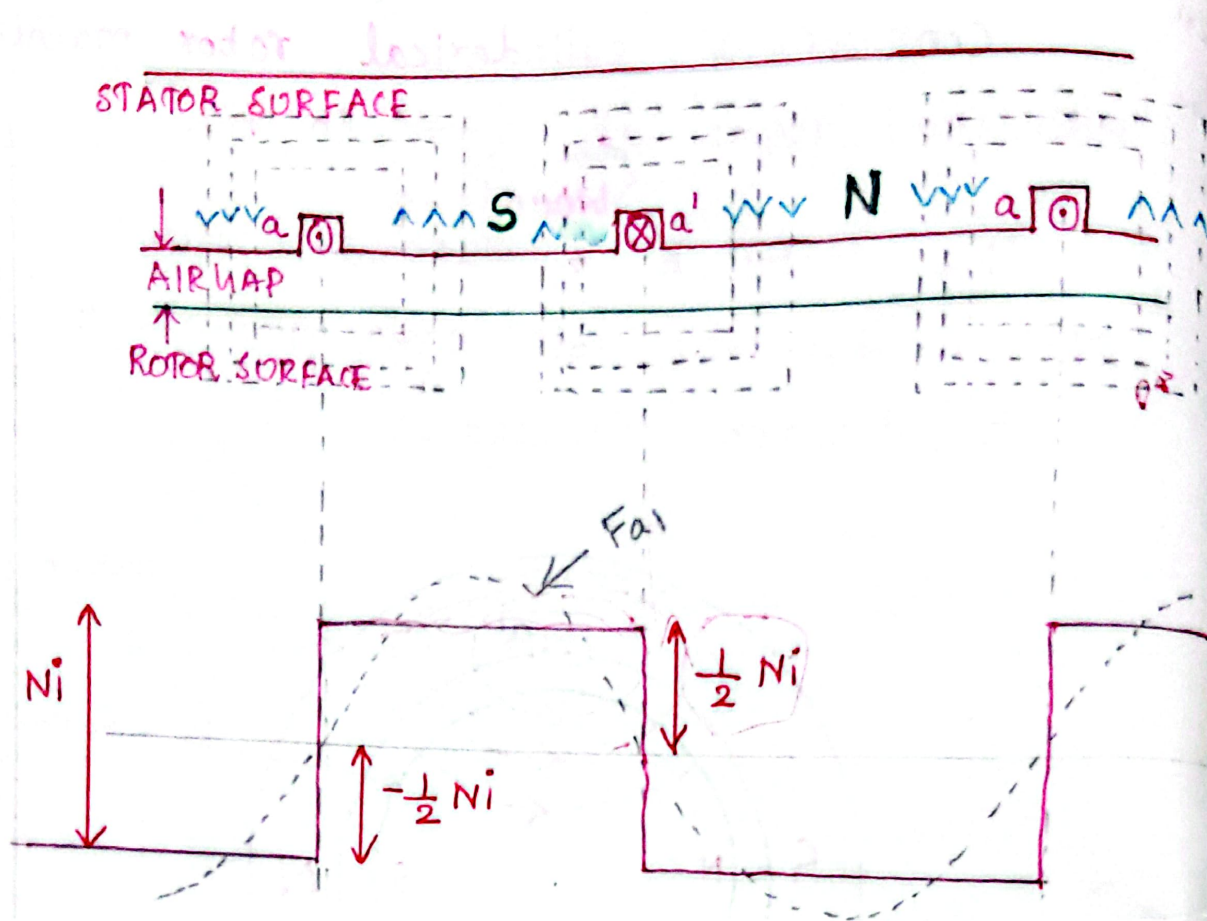 STATOR SURFACE
a S a' N a
AIRGAP
ROTOR SURFACE
Fa1
Ni
1/2 Ni
-1/2 Ni